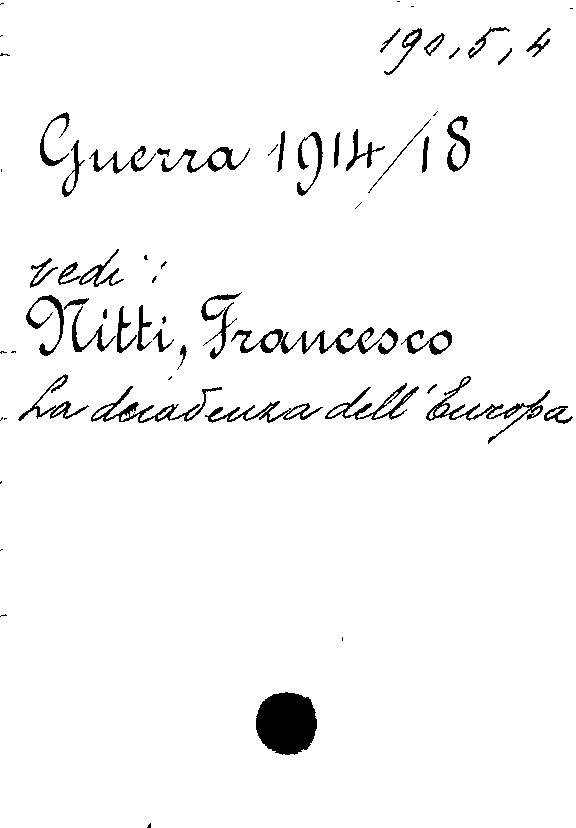 190,5,4
Guerra 1914/18
vedi:
Nitti, Francesco
La decadenza dell'Europa